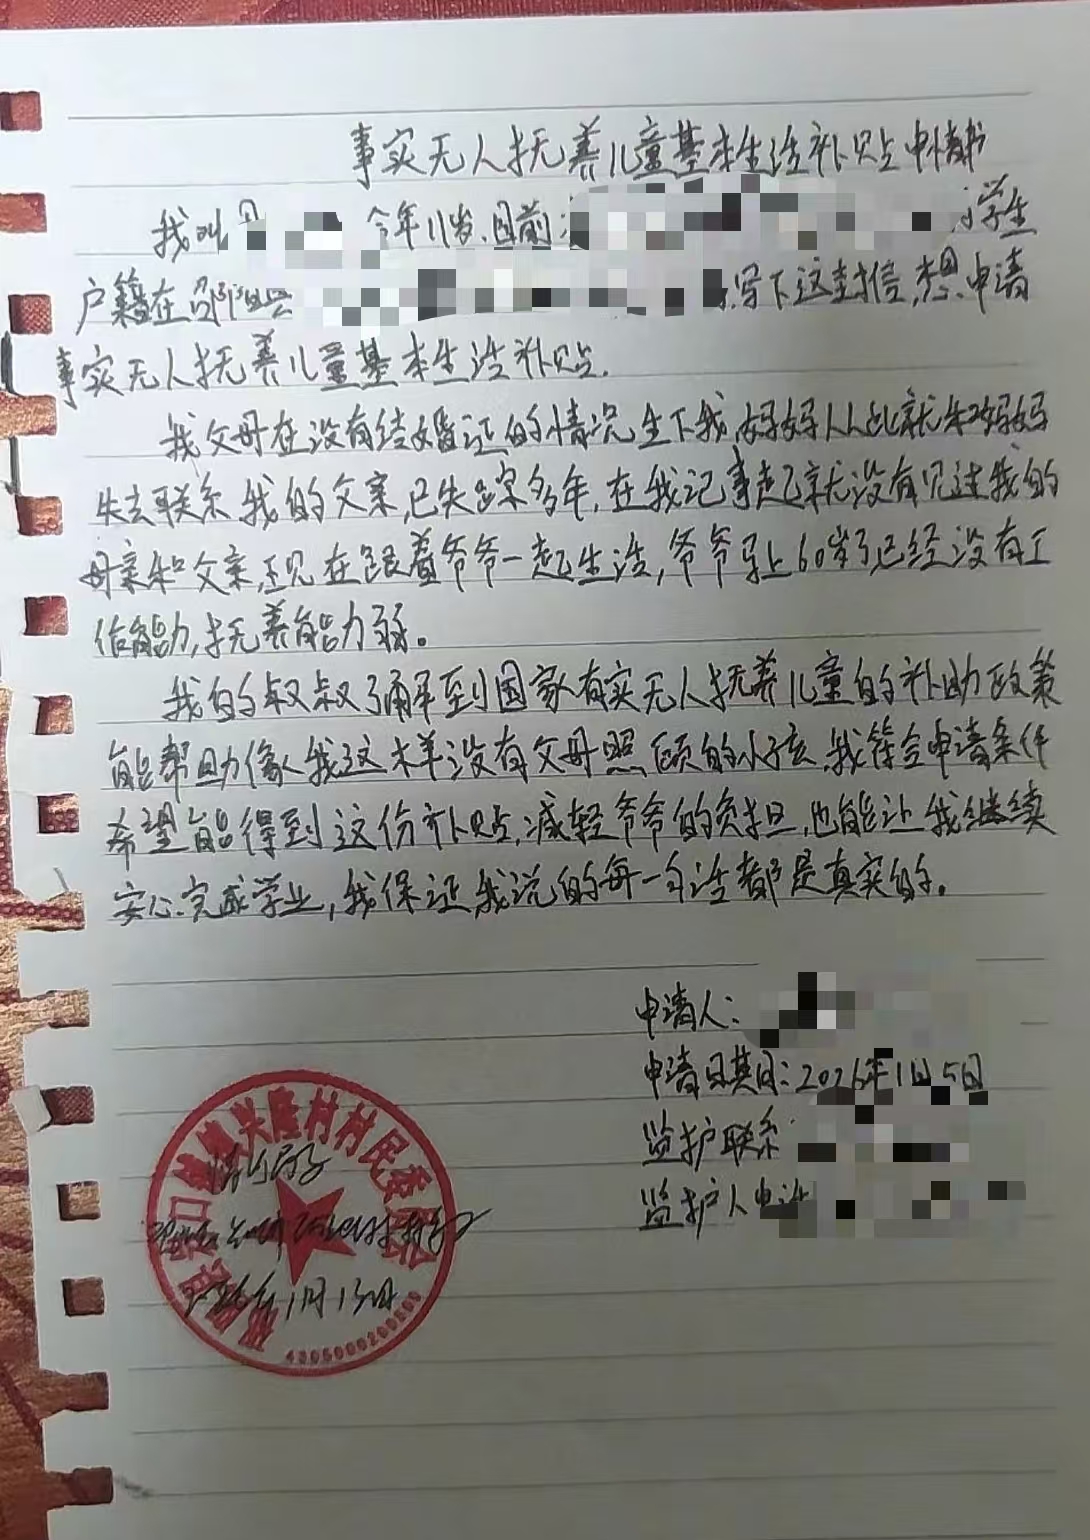 事实无人抚养儿童基本生活补贴申请书
我叫 今年11岁、目前 小学生
户籍在 写下这封信,想申请
事实无人抚养儿童基本生活补贴.
我父母在没有结婚证的情况生下我,妈妈从此就和妈妈
失去联系.我的父亲,已失踪多年,在我记事起就没有见过我的
母亲和父亲,现在跟着爷爷一起生活,爷爷马上60岁了,已经没有工
作能力,抚养能力弱。
我的叔叔了解到国家有实无人抚养儿童的补助政策
能帮助像我这样没有父母照顾的小孩.我符合申请条件
希望能得到这份补贴,减轻爷爷的负担,也能让我继续
安心完成学业,我保证我说的每一句话都是真实的。
申请人:
申请日期:2026年1月5日
监护联系
监护人电话
兴隆村村民委员会
1月13日